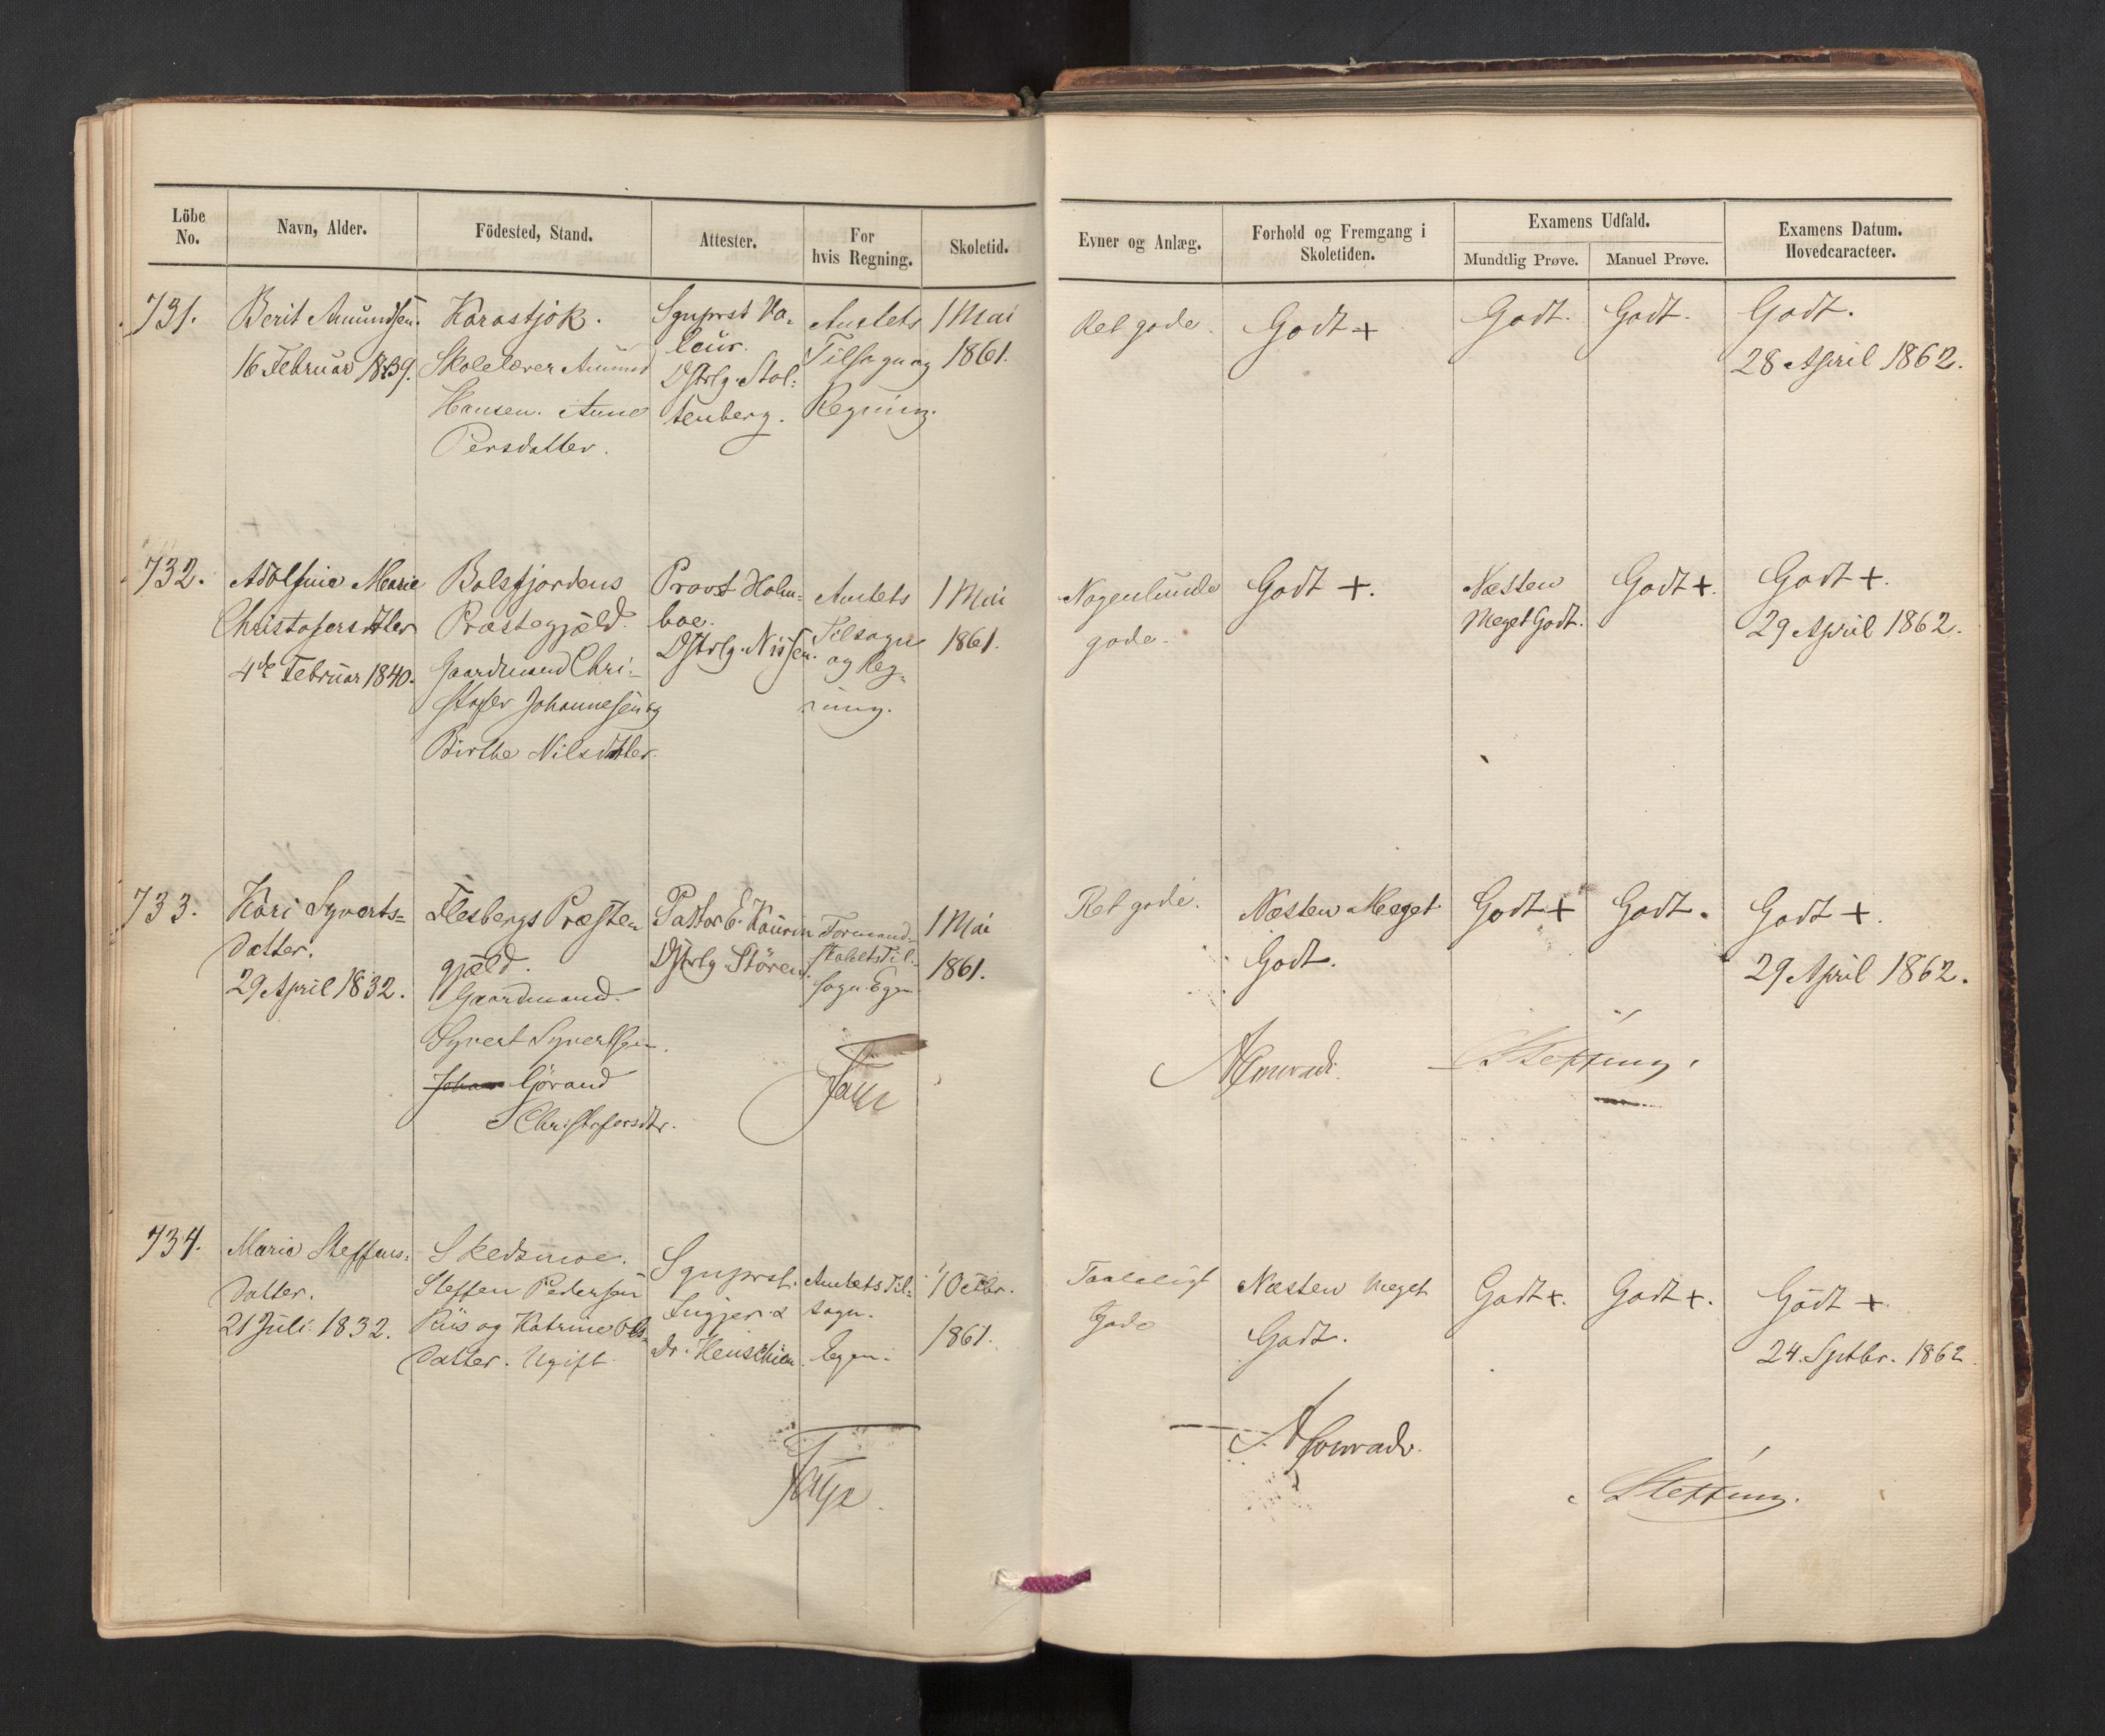 Löbe No.
Navn, Alder.
Födested, Stand.
Attester.
For hvis Regning.
Skoletid.
Evner og Anlæg.
Forhold og Fremgang i Skoletiden.
Examens Udfald.
Mundtlig Prøve.
Manuel Prøve.
Examens Datum. Hovedcaracteer.
731.
Berit Amundsen.
16 Februar 1839.
Karastjok.
Skolelærer Amund
Hansen. Anne
Persdatter.
Sgnprst Va-
leur.
Dstrlg. Stol-
tenberg.
Amtets
Tilsagn og
Regning.
1 Mai
1861.
Ret gode.
Godt +
Godt.
Godt.
Godt.
28 April 1862.
732.
Adolfine Marie
Christofersdtter
4de Februar 1840.
Balsfjordens
Præstegjæld.
Gaardmand Chri-
stofer Johannesen og
Birthe Nilsdtter.
Provst Holm-
boe.
Dstrlg. Nissen.
Amtets
Tilsagn
og Reg-
ning.
1 Mai
1861.
Nogenlunde
gode.
Godt +.
Næsten
Meget Godt.
Godt +.
Godt +.
29 April 1862.
733.
Kari Syverts-
datter.
29 April 1832.
Flesbergs Præste-
gjæld.
Gaardmand
Syvert Syvertsen.
Johan Görand
Christofersdtr.
Pastor E. Kaurin
Dstrlg Stören.
Formand-
skabets Til-
sagn. Egen
1 Mai
1861.
Faye
Ret gode.
Næsten Meget
Godt.
Godt +
Godt.
Godt +.
29 April 1862.
AConradi.
Steffens.
734.
Maria Steffens-
datter.
21 Juli 1832.
Skedsmoe.
Steffen Pedersen
Riis og Katrine Ols-
datter. Ugift.
Sgnprst.
Dr. Heuschien
Amtets Til-
sagn.
Egen.
1 Octbr.
1861.
Faye
Taaleligt
Gode
Næsten Meget
Godt.
Godt +.
Godt +.
Godt +
24. Septbr. 1862
AConradi.
Steffens.